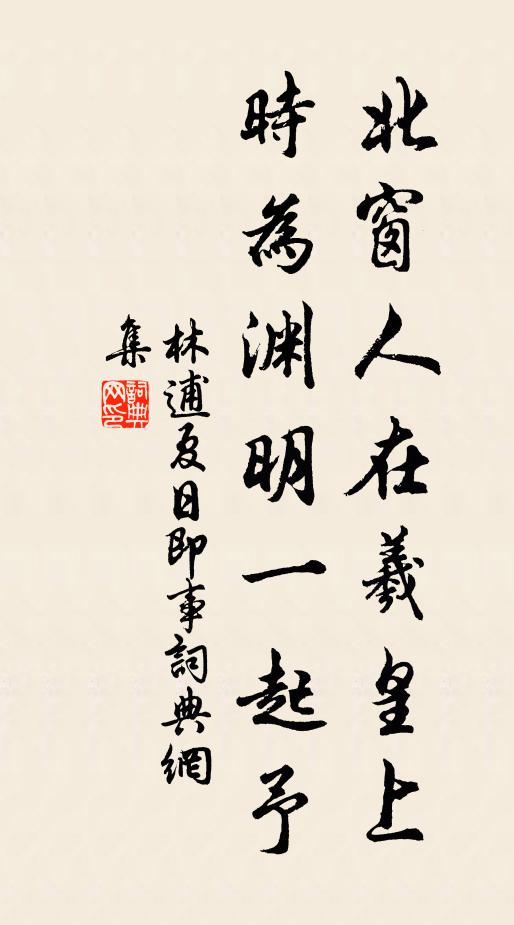 北窗人在羲皇上
時為淵明一起予
林逋夏日即事詞典網
集
詞典网印